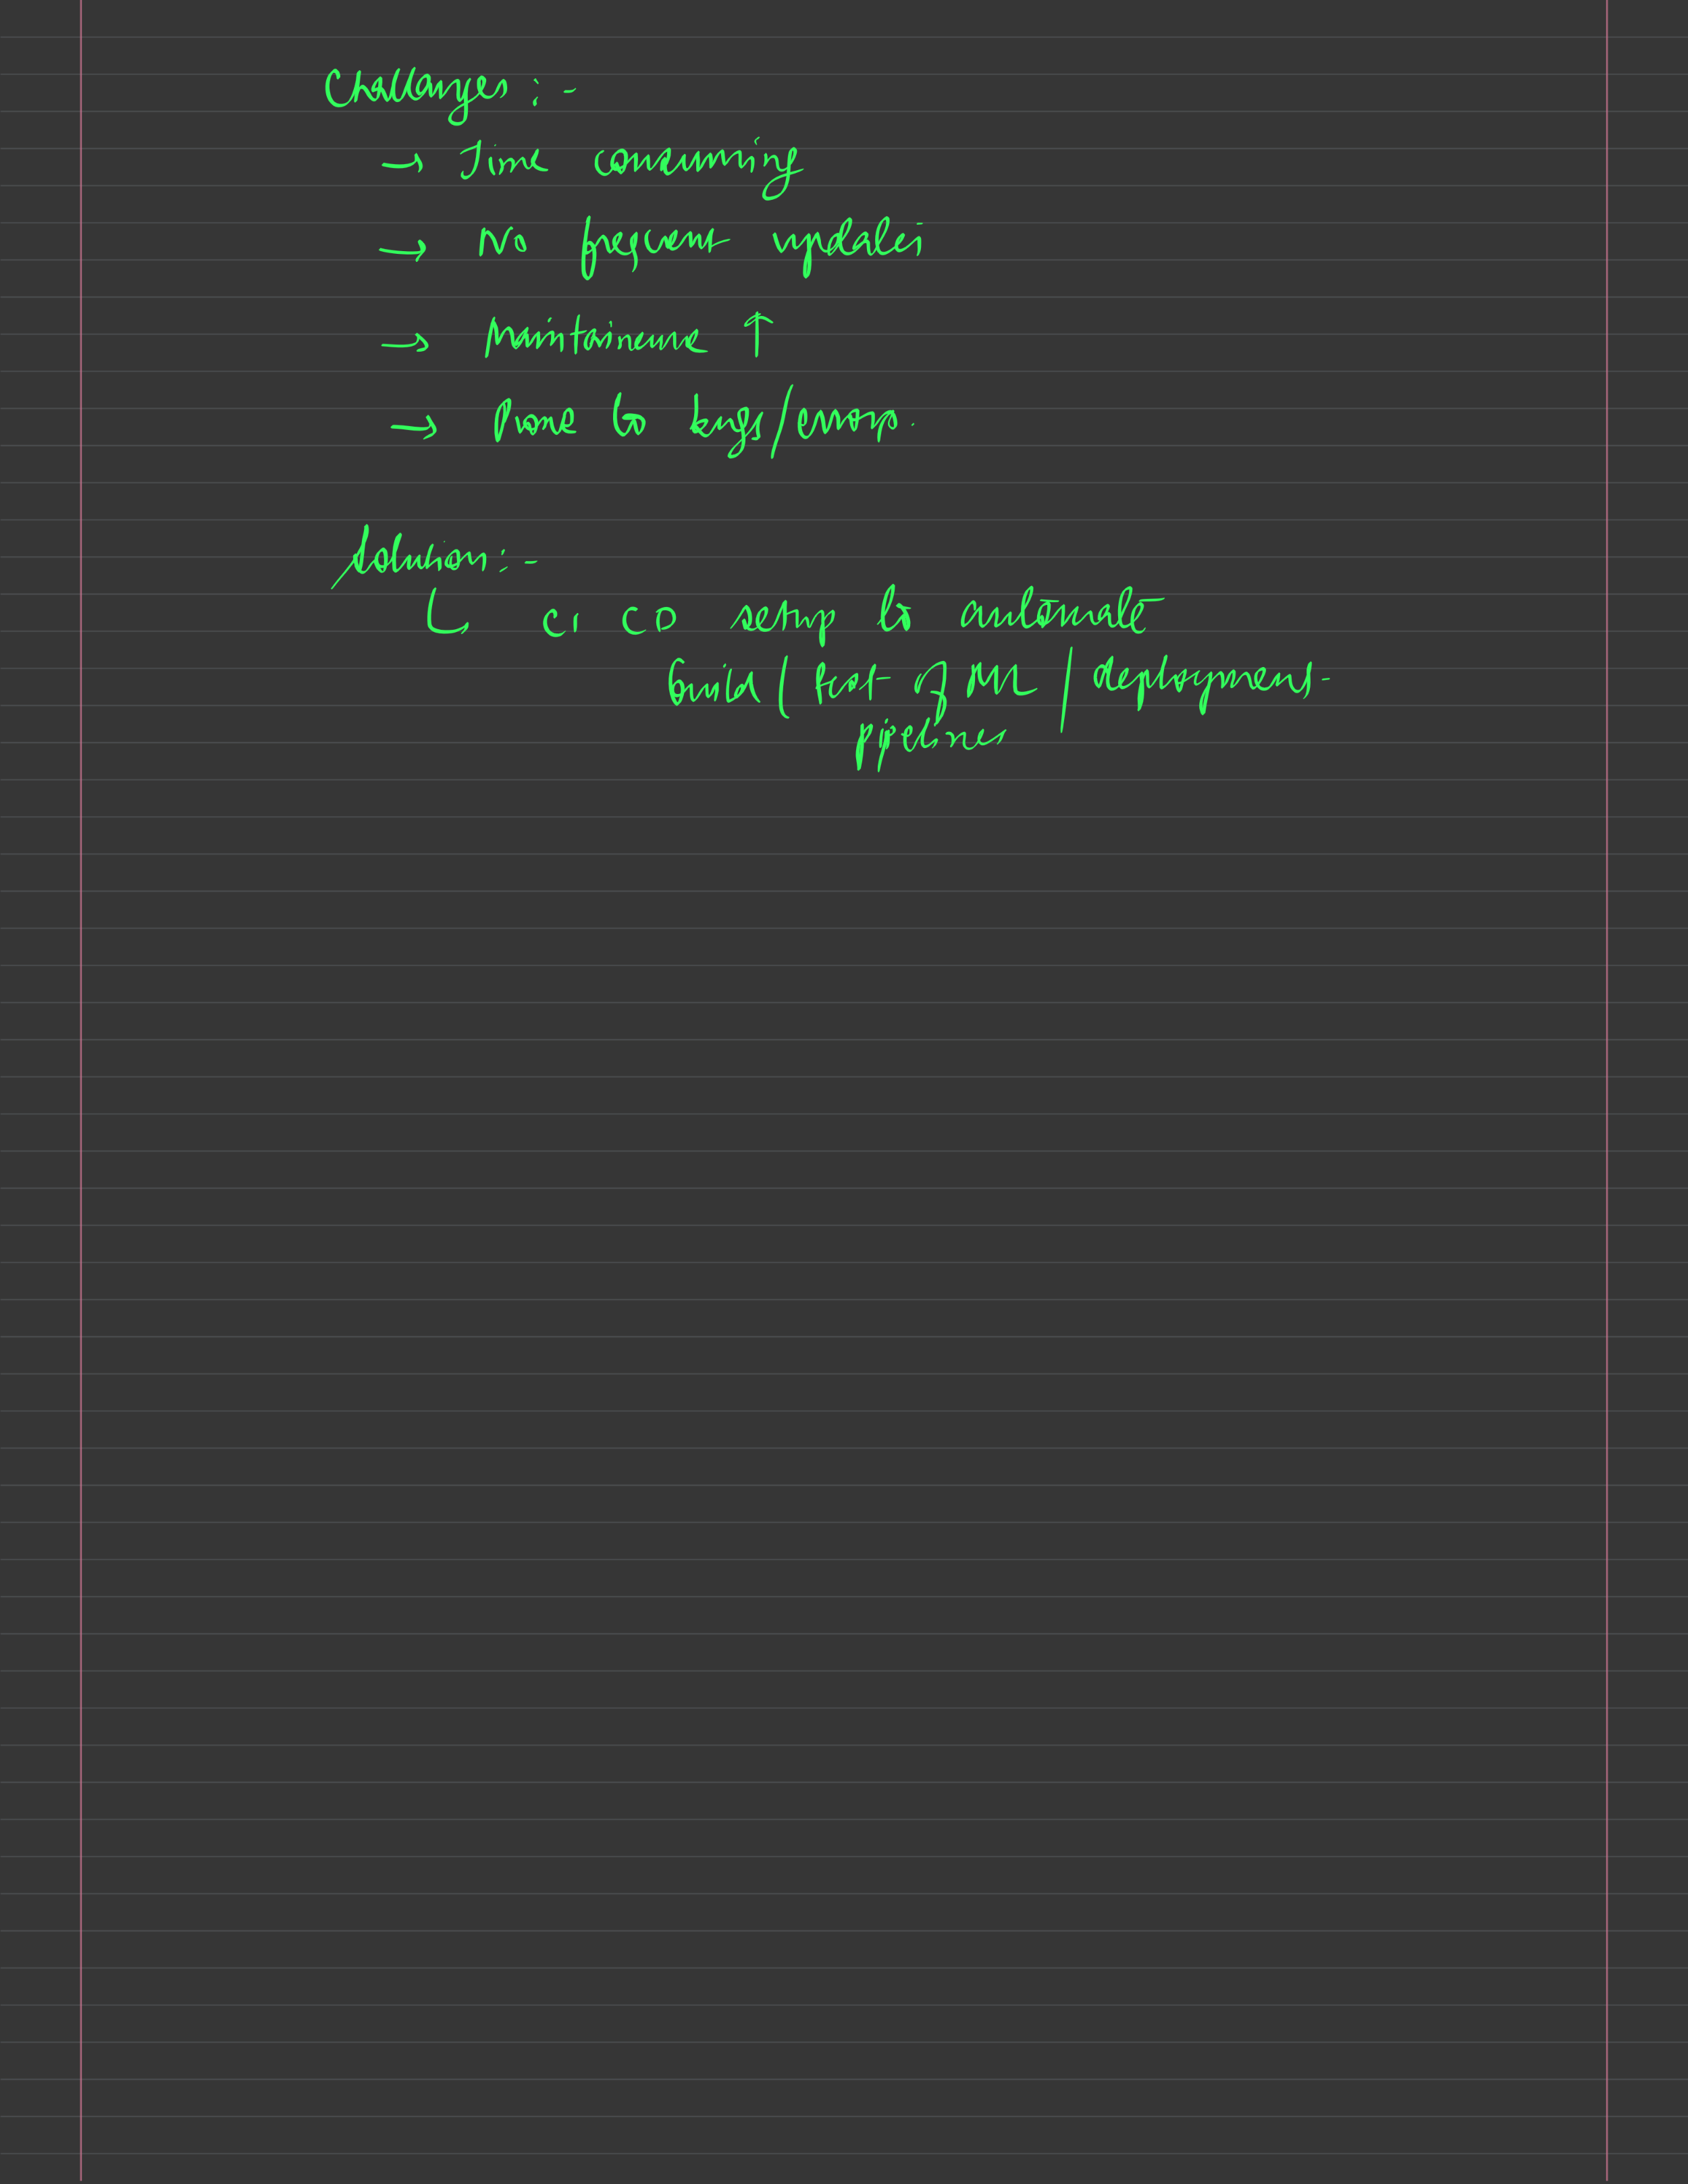 Challanges :-
→ Time consuming
→ No frequent updates
→ Maintainance ↑
→ Prone to bugs/errors.
Solution :-
↳ CI CD setup to automate
build / test of ML / deployment
pipelines